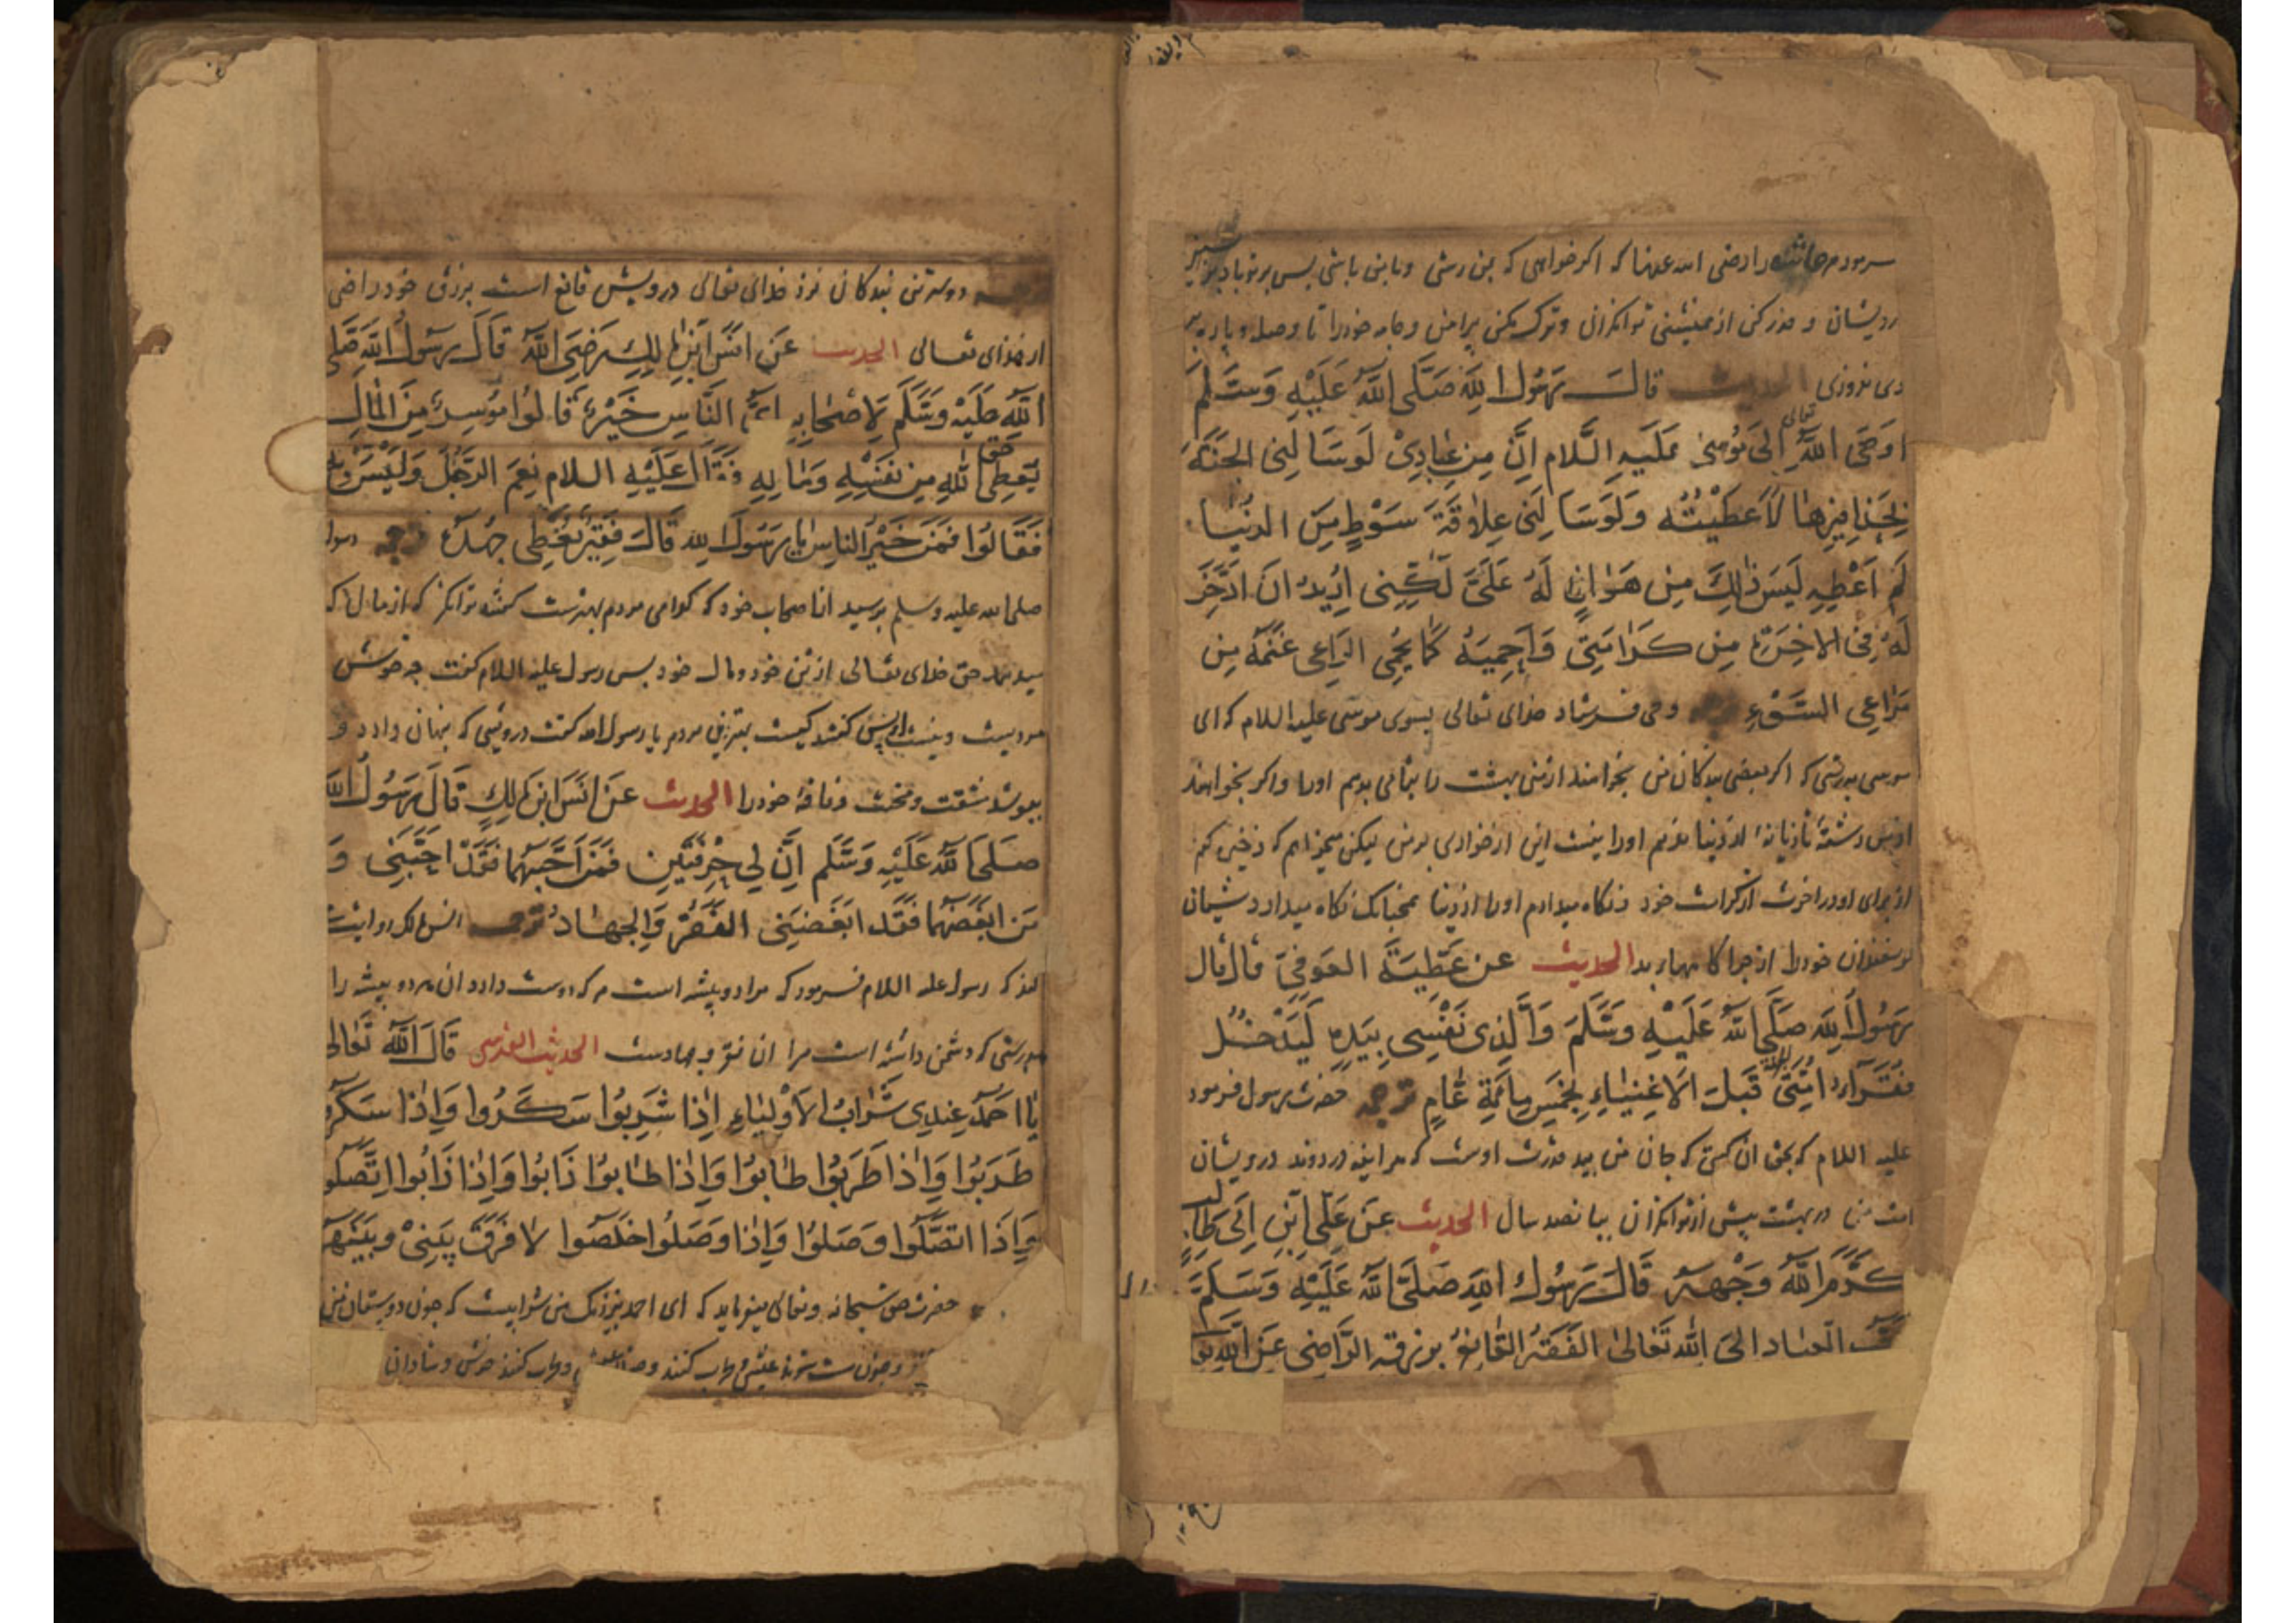 فرمود مر عائشه را رضی الله عنها که اکر خواهی که بمن رسی و با من باشی پس بر تو باد
درویشان و حذر کن از همنشینی توانکران و ترک مکن پیراهن و جامه خود را تا وصله و پاره بر
وی ندوزی الحدیث قال رسول الله صلی الله علیه وسلم
اوحی الله تعالی الی موسی علیه السلام ان من عبادی لو سالنی الجنة
بحذافیرها لاعطیته ولو سالنی علاقة سوط من الدنیا
لم اعطه لیس ذالک من هوان له علی لکنی ارید ان ادخر
له فی الاخرة من کرامتی واحمیه کما یحمی الراعی غنمه من
مراعی السوء وحی فرستاد خدای تعالی بسوی موسی علیه السلام که ای
موسی بدرستی که اکر بعضی بندکان من بخواهند از من بهشت را بتمامی بدهم او را و اکر بخواهند
از من رشته تازیانه از دنیا ندهم او را نیست این از خواری بر من لیکن میخواهم که ذخیره کنم
از برای او در اخرت از کرامت خود و نکاه میدارم او را از دنیا همچنانک نکاه میدارد شبان
کوسفندان خود را از چراکاههاء بد الحدیث عن عطیة العوفی قال قال
رسول الله صلی الله علیه وسلم والذی نفسی بیده لیدخل
فقراء امتی الجنة قبل الاغنیاء بخمس مائة عام ترجمه حضرت رسول فرمود
علیه السلام که بحق ان کسی که جان من بید قدرت اوست که هر اینه در روند درویشان
امت من در بهشت پیش از توانکران بپانصد سال الحدیث عن علی ابن ابی طالب
کرم الله وجهه قال رسول الله صلی الله علیه وسلم
العباد الی الله تعالی الفقیر القانع برزقه الراضی عن الله تعالی
دوسترین بندکان نزد خدای تعالی درویش قانع است برزق خود راضی
از خدای تعالی الحدیث عن انس ابن مالک رضی الله قال رسول الله صلی
الله علیه وسلم لاصحابه ای الناس خیر قالوا موسر من المال
یعطی حق الله من نفسه وماله فقال علیه السلام نعم الرجل ولیس به
فقالوا فمن خیر الناس یا رسول الله قال فقیر یعطی جهده ترجمه رسول
صلی الله علیه وسلم پرسید از اصحاب خود که کدامی مردم بهترست کفتند توانکر که از مال که
میدهد حق خدای تعالی از تن خود و مال خود پس رسول علیه السلام کفت چه خوش
مردیست و نیست او پس کفتند کیست بهترین مردم یا رسول الله کفت درویشی که پنهان دارد و
بپوشد مشقت و محنت و فاقه خود را الحدیث عن انس ابن مالک قال رسول الله
صلی الله علیه وسلم ان لی حرفتین فمن احبهما فقد احبنی و
من ابغضهما فقد ابغضنی الفقر والجهاد ترجمه انس مالک روایت
کند که رسول علیه السلام فرمود که مرا دو پیشه است هر که دوست دارد ان هر دو پیشه را
بدرستی که دشمن داشته است مرا ان فقر و جهادست الحدیث القدسی قال الله تعالی
یا احمد عندی شراب الاولیاء اذا شربوا سکروا واذا سکروا
طربوا واذا طربوا طابوا واذا طابوا ذابوا واذا ذابوا اتصلوا
واذا اتصلوا وصلوا واذا وصلوا خلصوا لا فرق بینی وبینهم
حضرت حق سبحانه وتعالی میفرماید که ای احمد بنزدیک من شرابیست که چون دوستان من
و چون مست شوند عیش و طرب کنند و طرب کنند خوش و شادان